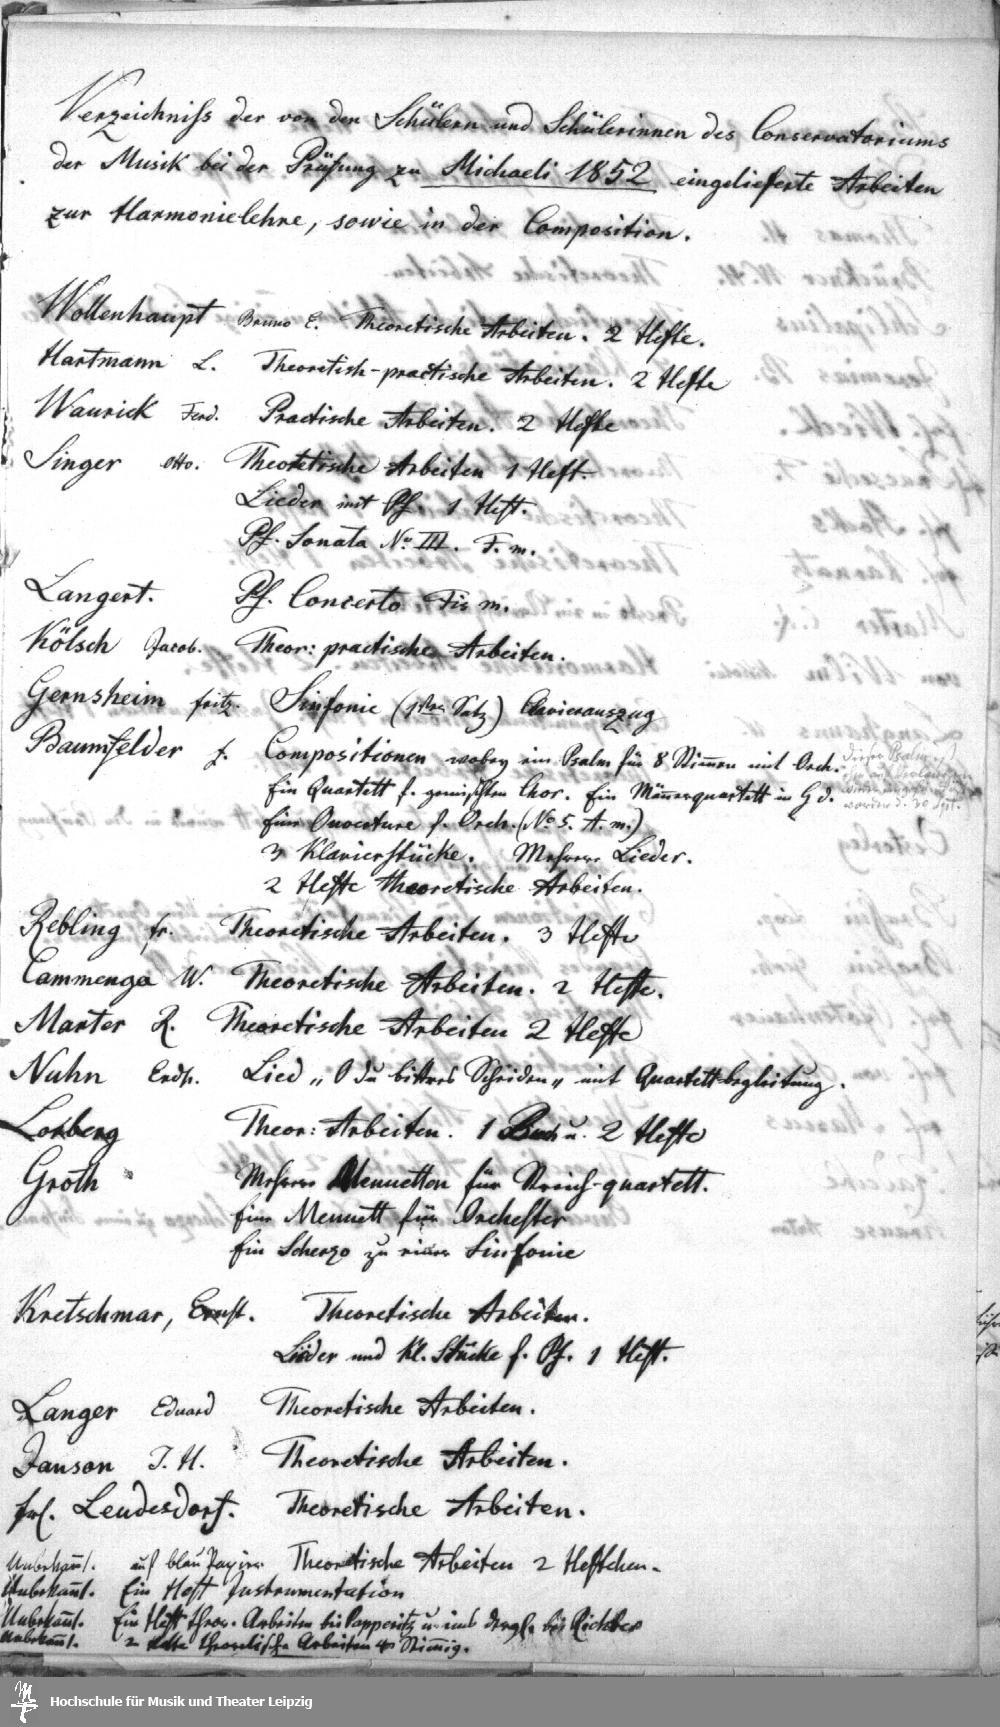 Verzeichniss der von den Schülern und Schülerinnen des Conservatoriums
der Musik bei der Prüfung zu Michaeli 1852 eingelieferte Arbeiten
zur Harmonielehre, sowie in der Composition.
Wollenhaupt Bruno E. Theoretische Arbeiten. 2 Hefte.
Hartmann L. Theoretish-practische Arbeiten. 2 Hefte
Waurick Ferd. Practische Arbeiten. 2 Hefte
Singer Otto. Theoretische Arbeiten 1 Heft.
Lieder mit Pf. 1 Heft.
Pf. Sonata No. III. F. m.
Langert. Pf. Concerto Fis m.
Kölsch Jacob. Theor: practische Arbeiten.
Gernsheim fritz. Sinfonie (1ster Satz) Clavierauszug
Baumfelder f. Compositionen wobey ein Psalm für 8 Stimmen mit Orch.
Ein Quartett f. gemischten Chor. Ein Männerquartett in G d.
Eine Ouverture f. Orch. (No 5. A. m.)
3 Klavierstücke. Mehrere Lieder.
2 Hefte theoretische Arbeiten.
Rebling fr. Theoretische Arbeiten. 3 Hefte
Cammenga W. Theoretische Arbeiten. 2 Hefte.
Marter R. Theoretische Arbeiten 2 Hefte
Nuhn Erdh. Lied „O du bittres Scheiden„ mit Quartettbegleitung.
Lorberg Theor: Arbeiten. 1 Buch u. 2 Hefte
Groth Mehrere Menuetten für Streich-quartett.
Eine Menuett für Orchester
Ein Scherzo zu einer Sinfonie
Kretschmar, Ernst. Theoretische Arbeiten.
Lieder und Kl. Stücke f. Pf. 1 Heft.
Langer Eduard Theoretische Arbeiten.
Janson J. H. Theoretische Arbeiten.
frl. Leudesdorf. Theoretische Arbeiten.
Unbekannt. auf blau Papier Theoretische Arbeiten 2 Heftchen.
Unbekannt. Ein Heft Instrumentation
Unbekannt. Ein Heft theor. Arbeiten bei Papperitz u. ein dergl. bei Richter
Unbekannt. 2 Hefte theoretische Arbeiten 4 Stimmig.
Hochschule für Musik und Theater Leipzig